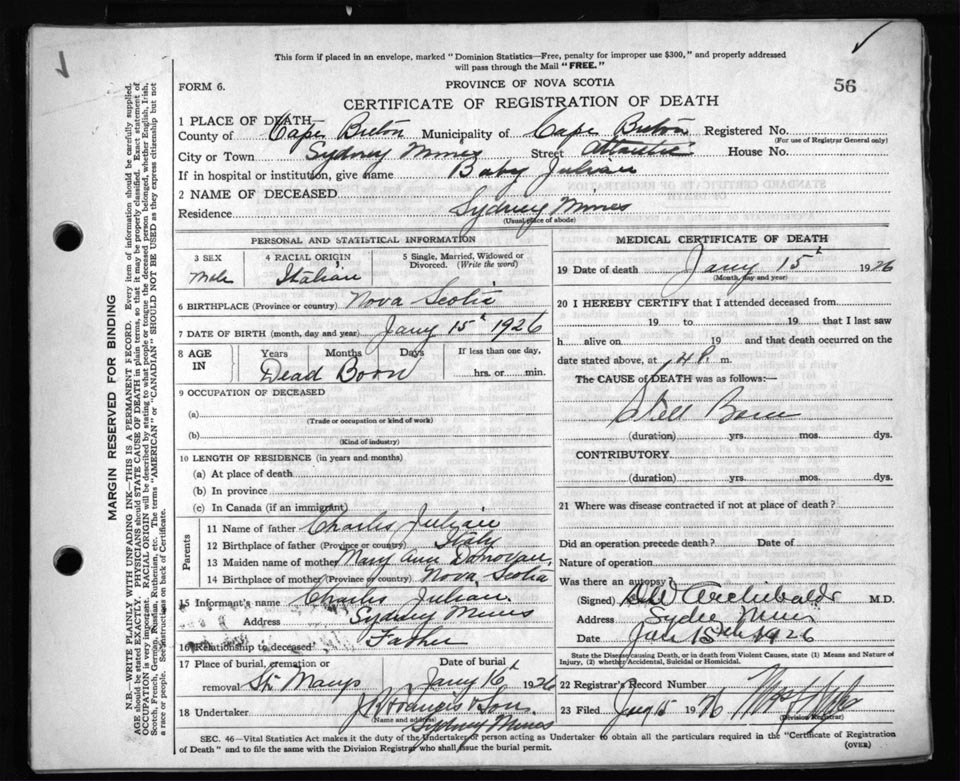 This form if placed in an envelope, marked "Dominion Statistics—Free, penalty for improper use $300," and properly addressed
will pass through the Mail "FREE."
FORM 6.
PROVINCE OF NOVA SCOTIA
56
CERTIFICATE OF REGISTRATION OF DEATH
1 PLACE OF DEATH—
County of Cape Breton Municipality of Cape Breton Registered No.
(For use of Registrar General only)
City or Town Sydney Mines Street Atlantic House No.
If in hospital or institution, give name Baby Julian
2 NAME OF DECEASED
Residence Sydney Mines
(Usual place of abode)
PERSONAL AND STATISTICAL INFORMATION
3 SEX
Male
4 RACIAL ORIGIN
Italian
5 Single, Married, Widowed or
Divorced. (Write the word)
6 BIRTHPLACE (Province or country) Nova Scotia
7 DATE OF BIRTH (month, day and year) Jany 15th 1926
8 AGE IN
Years Months Days
If less than one day,
hrs. or min.
Dead Born
9 OCCUPATION OF DECEASED
(a)
(Trade or occupation or kind of work)
(b)
(Kind of industry)
10 LENGTH OF RESIDENCE (in years and months)
(a) At place of death
(b) In province
(c) In Canada (if an immigrant)
Parents
11 Name of father Charles Julian
12 Birthplace of father (Province or country) Italy
13 Maiden name of mother Mary Ann Donovan
14 Birthplace of mother (Province or country) Nova Scotia
15 Informant's name Charles Julian
Address Sydney Mines
16 Relationship to deceased Father
17 Place of burial, cremation or
removal St. Marys
Date of burial
Jany 16th 1926
18 Undertaker Francis & Son
(Name and address)
Sydney Mines
MEDICAL CERTIFICATE OF DEATH
19 Date of death Jany 15th 1926
(Month, day and year)
20 I HEREBY CERTIFY that I attended deceased from
19 to 19 that I last saw
h alive on 19 and that death occurred on the
date stated above, at 4 P. m.
The CAUSE of DEATH was as follows:—
Still Born
(duration) yrs. mos. dys.
CONTRIBUTORY
(duration) yrs. mos. dys.
21 Where was disease contracted if not at place of death?
Did an operation precede death? Date of
Nature of operation
Was there an autopsy?
(Signed) Archibald M.D.
Address Sydney Mines
Date Jan 15th 1926
State the Disease causing Death, or in death from Violent Causes, state (1) Means and Nature of
Injury, (2) whether Accidental, Suicidal or Homicidal.
22 Registrar's Record Number
23 Filed Jany 15 1926
(Division Registrar)
SEC. 46—Vital Statistics Act makes it the duty of the Undertaker or person acting as Undertaker to obtain all the particulars required in the "Certificate of Registration
of Death" and to file the same with the Division Registrar who shall issue the burial permit.
(OVER)
MARGIN RESERVED FOR BINDING
N.B.—WRITE PLAINLY WITH UNFADING INK—THIS IS A PERMANENT RECORD. Every item of information should be carefully supplied.
AGE should be stated EXACTLY. PHYSICIANS should STATE CAUSE OF DEATH in plain terms, so that it may be properly classified. Exact statement of
OCCUPATION is very important. RACIAL ORIGIN will be described by stating to what people or tongue the deceased person belonged, whether English, Irish,
Scotch, French, German, Russian, Ruthenian, etc. The terms "AMERICAN" or "CANADIAN" SHOULD NOT BE USED as they express citizenship but not
a race or people. See instructions on back of Certificate.